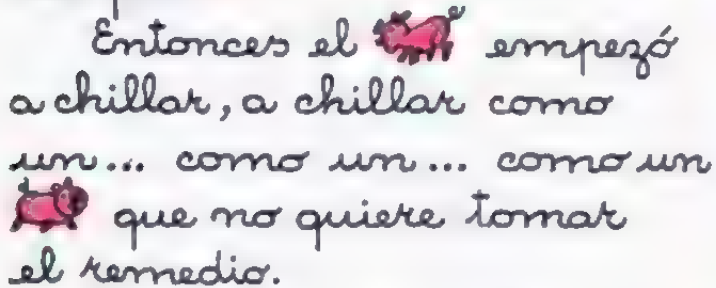 Entonces el empezó
a chillar, a chillar como
un... como un... como un
que no quiere tomar
el remedio.